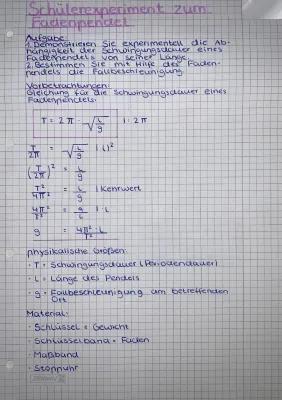 Schülerexperiment zum
Fadenpendel
Aufgabe:
1. Demonstrieren Sie experimentell die Ab-
hängigkeit der Schwingungsdauer eines
Fadenpendels von seiner Länge
2. Bestimmen Sie mit Hilfe des Faden-
pendels die Fallbeschleunigung.
Vorbetrachtungen:
Gleichung für die Schwingungsdauer eines
Fadenpendels:
T = 2π · √(L/g) | : 2π
T/2π = √(L/g) | ( )²
(T/2π)² = L/g
T²/4π² = L/g | Kehrwert
4π²/T² = g/L | · L
g = 4π² · L/T²
physikalische Größen:
· T = Schwingungsdauer (Periodendauer)
· L = Länge des Pendels
· g = Fallbeschleunigung am betreffenden
Ort
Material:
· Schlüssel = Gewicht
· Schlüsselband = Faden
· Maßband
· Stoppuhr